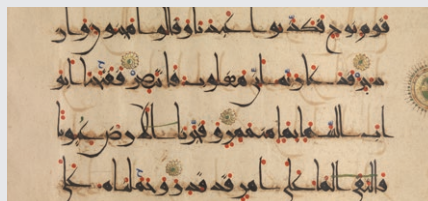 قوم نوح فكذبوا عبدنا وقالوا مجنون وازد
جر فدعا ربه اني مغلوب فانتصر ففتحنا ابو
اب السما بما منهمر وفجرنا الارض عيونا
فالتقى الما على امر قد قدر وحملناه على